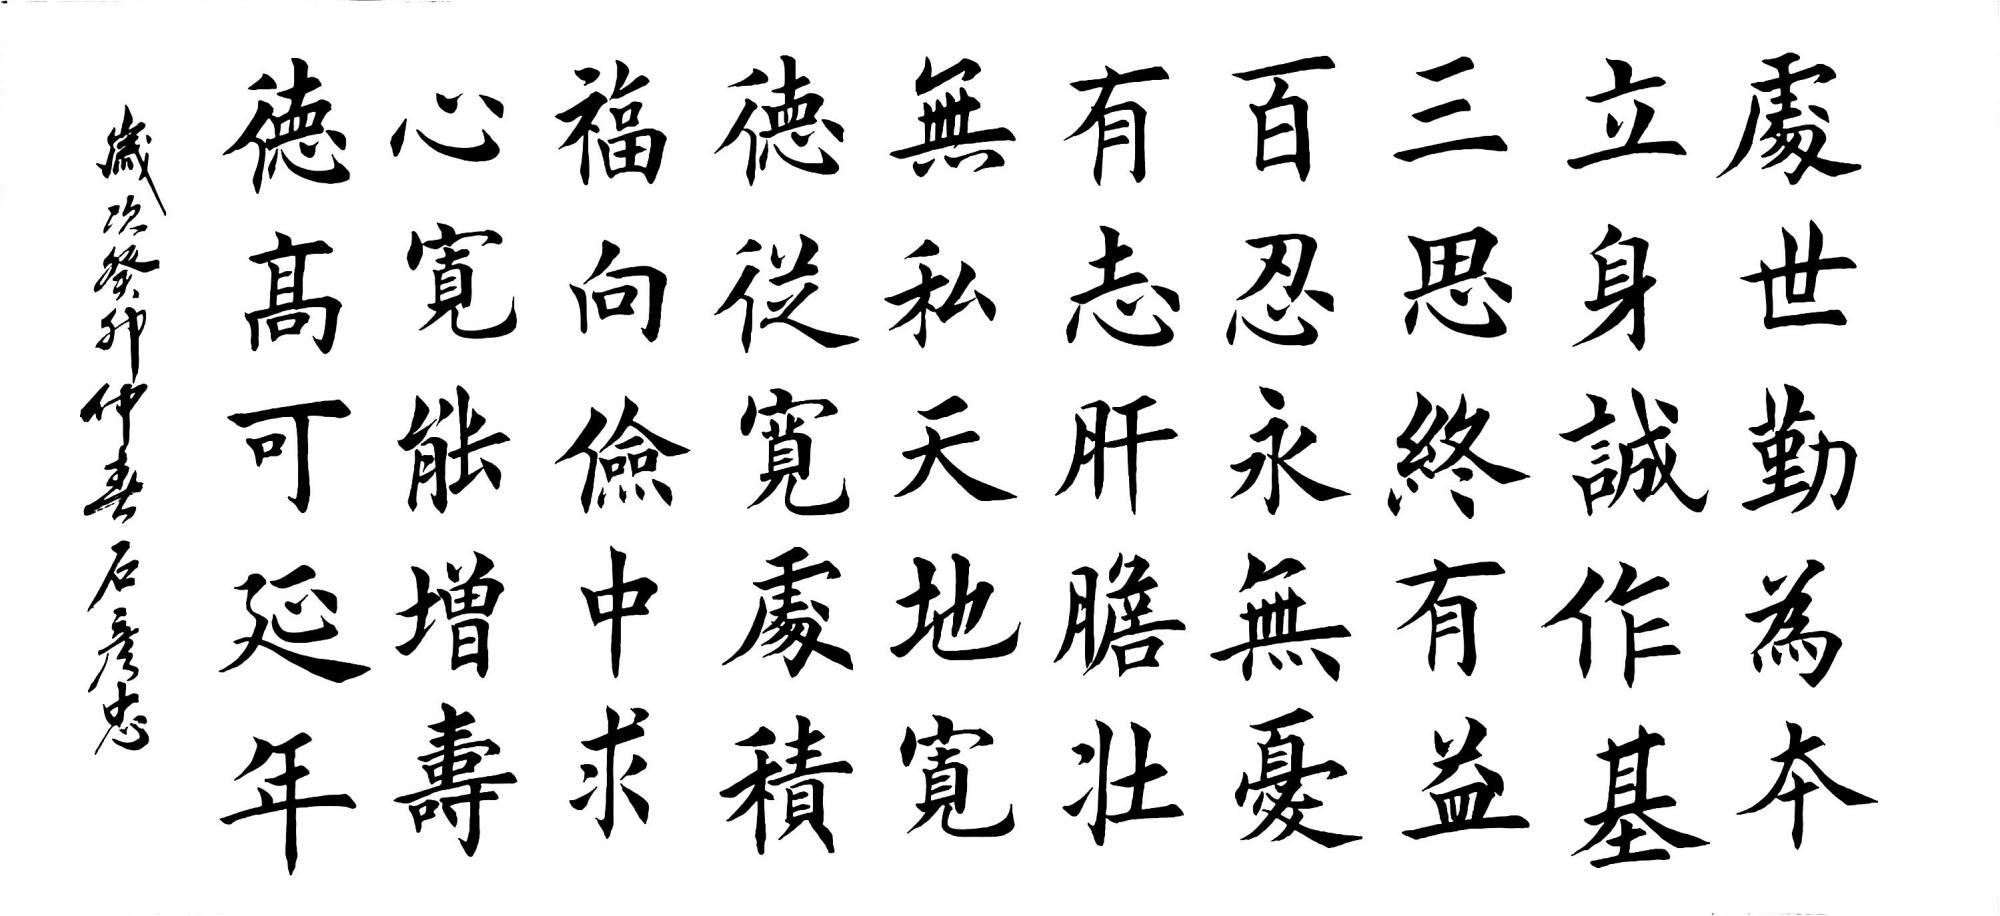 處世勤為本
立身誠作基
三思終有益
百忍永無憂
有志肝膽壯
無私天地寬
德從寬處積
福向儉中求
心寬能增壽
德高可延年
歲次癸卯仲春石彥忠